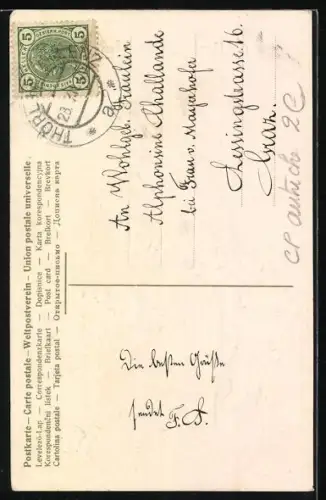 Postkarte — Carte postale — Weltpostverein — Union postale universelle
Levelező-Lap — Correspondenzkarte — Dopisnice — Karta korespondencyjna
Korespondenční lístek — Briefkaart — Post card — Brefkort — Brevkort
Cartolina postale — Tarjeta postal — Открытое письмо — Дописна карта
5 5
5 5
THÖRL
23
An Wohlgeb. Fräulein
Alphonsine Challande
bei Frau v. Mayrhofer
Lessingstrasse 16
Graz.
Die besten Grüße
sendet F. S.
CP autriche 2€